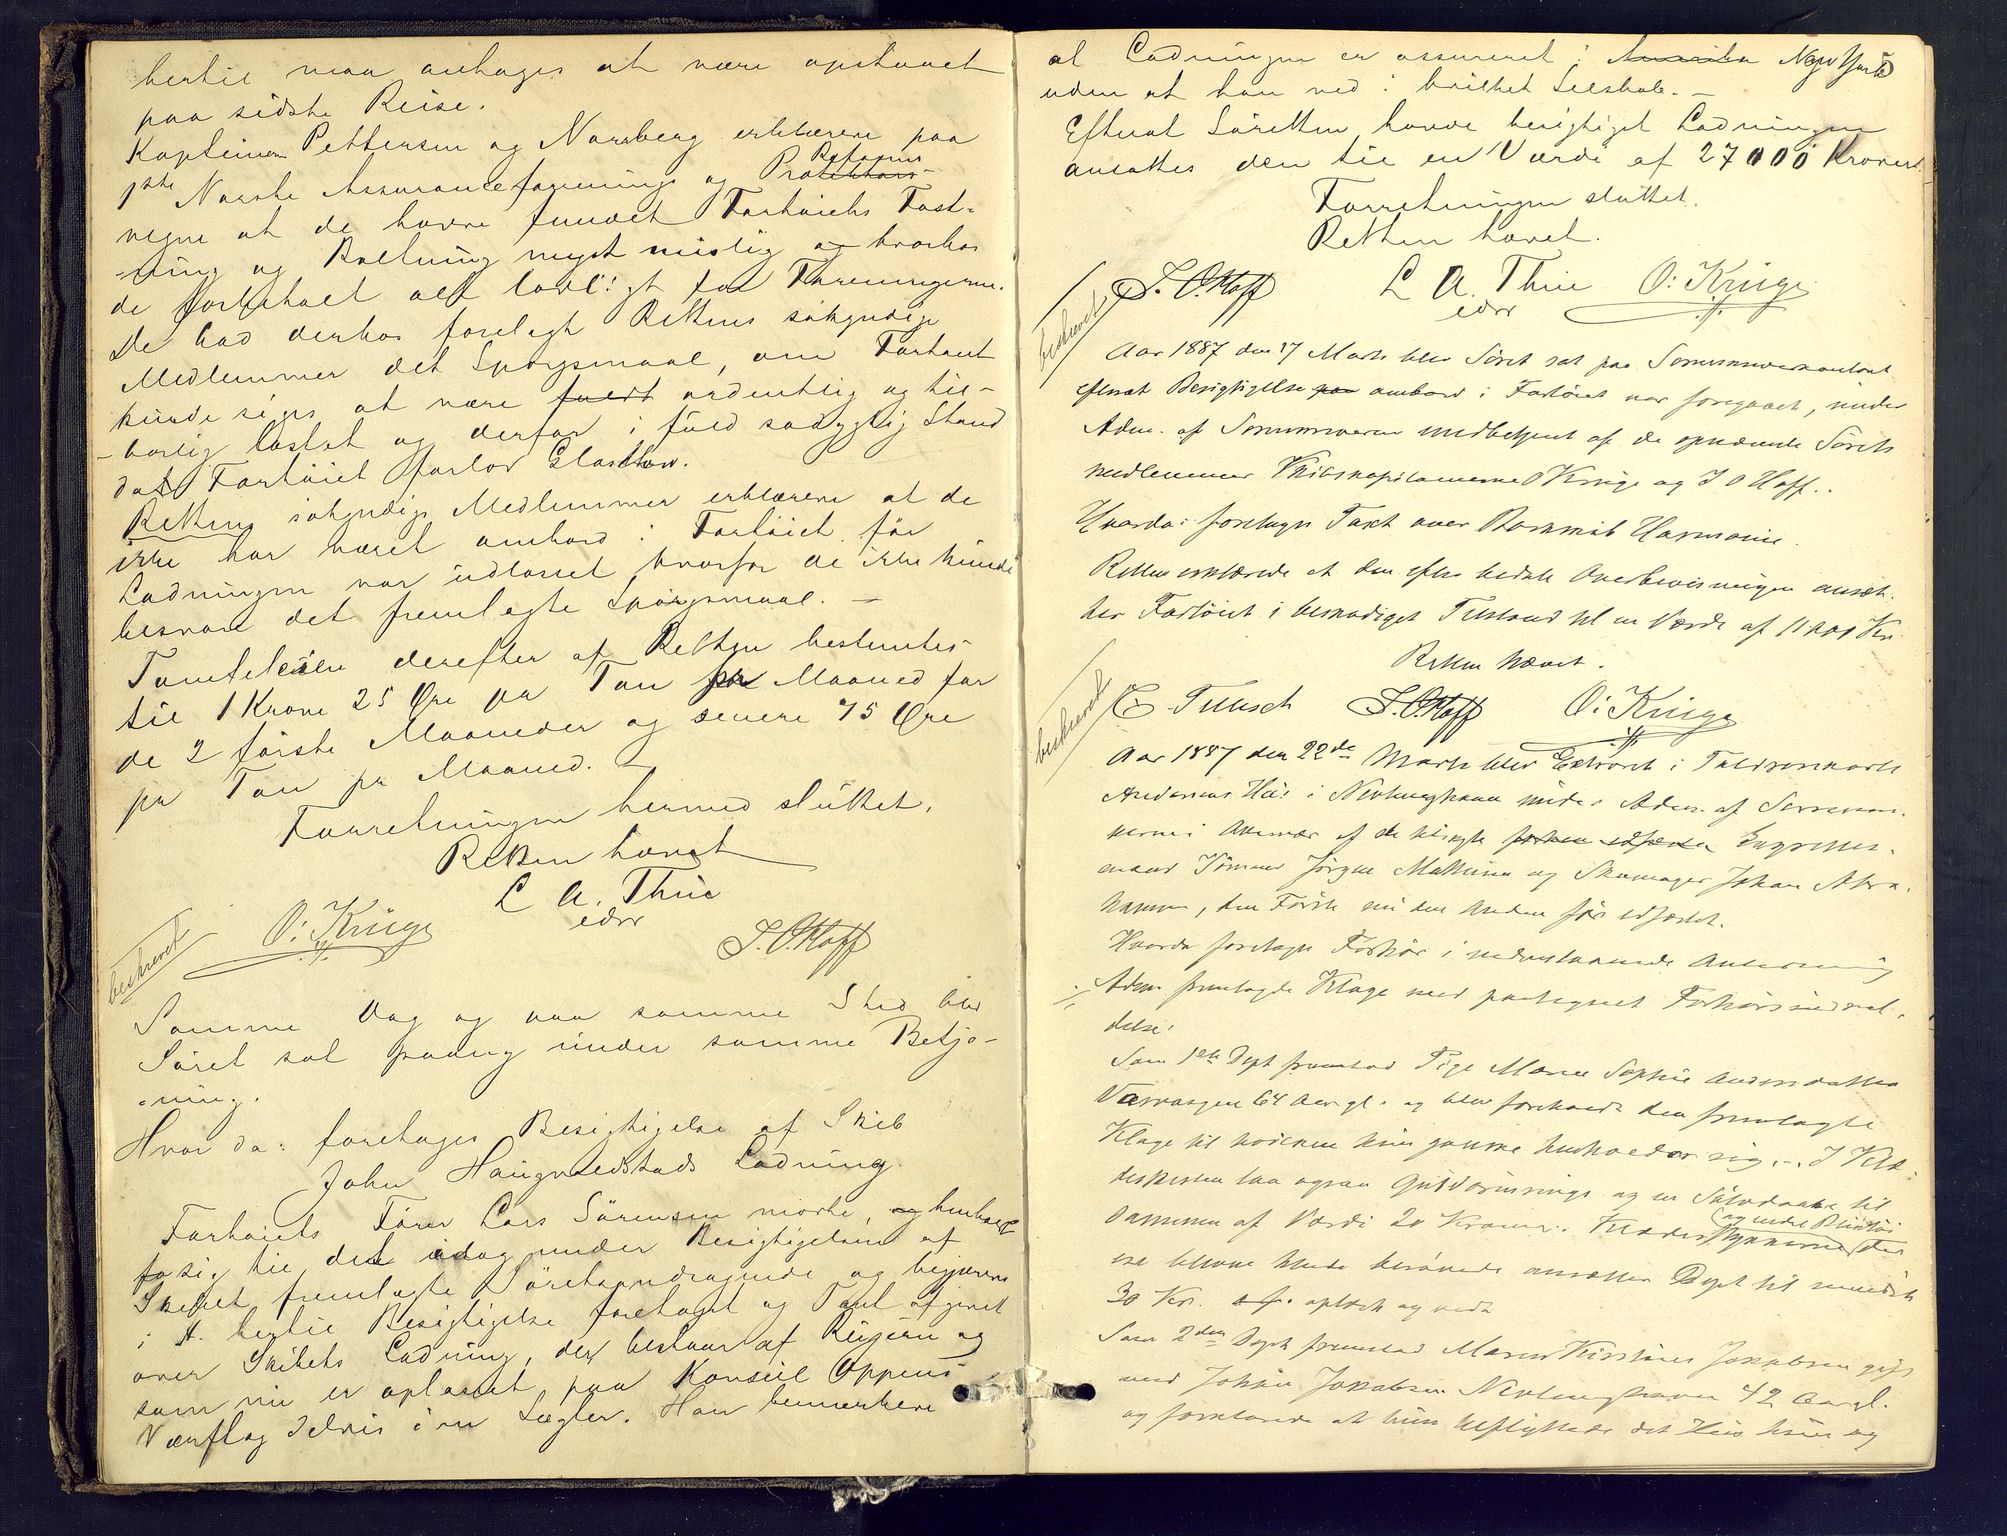 hertil maa antages at være opstaaet
paa sidste Reise.
Kapteinerne Pettersen og Norberg erklærere paa
1ste Norske Assuranceforenings og Protektions- Reform
vegne at de havde fundet Fartøiets Fast-
ning og Boltning meget mislig og hvorhos
de forbeholdt alt lovligt for Foreningerne.
De bad derhos forelagt Rettens søkyndige
Medlemmer det Spørgsmaal, om Fartøiet
kunde siges at være fuldt ordentlig og til-
-børlig lastet og derfor i fuld sødygtig Stand
da Fartøiet forlod
Rettens søkyndige Medlemmer erklærere at de
ikke har været ombord i Fartøiet før
Ladningen var udlosset hvorfor de ikke kunde
besvare det fremlagte Spørgsmaal. —
Tomteleien derefter af Retten bestemtes
til 1 Krone 25 Øre pr Ton pr Maaned for
de 2 første Maaneder og senere 75 Øre
pr Ton pr Maaned. —
Forretningen hermed sluttet.
Retten hævet
L A. Thue
edsv
O: Krüge
J. O. Hoff
beskrevet
Samme Dag og paa samme Sted blev
Søret sat paany under samme Betje-
-ning.
Hvor da: foretoges Besigtigelse af Skib
John Haugvaldstads Ladning.
Fartøiets Fører Lars Sørensen mødte, og henholdt
sig til det idag under Besigtigelsen af
Skibet fremlagte Søretsandragende og begjærere
i H. hertil Besigtigelse foretaget og Taxt afgivet
over Skibets Ladning, der bestaar af Rujern og
som nu er oplosset paa Konsul Oppens
Værft og delvis i en Lægter. Han bemærkere
at Ladningen er assureret i Amerika New York
uden at han ved i hvilket Selskab. —
Efterat Søretten havde besigtiget Ladningen
ansattes den til en Værdi af 27000 Kroner.
Forretningen sluttet.
Retten hævet.
J. O. Hoff L A. Thue O: Krüge
edsv
beskrevet
Aar 1887 den 17 Marts blev Søret sat paa Sorenskriverkontoret
efterat Besigtigelse paa ombord i Fartøiet var foregaaet, under
Adm. af Sorenskriveren medbetjent af de opnævnte Sørets
medlemmer Skibskapitainerne O Krüge og J O Hoff.
Hvorda: foretoges Taxt over Harmonie.
Retten erklærede at den efter bedste Overbevisningen ansæt-
ter Fartøiet i beskadiget Tilstand til en Værde af 11000 Kr.
Retten hævet.
beskrevet
E. Tuusch J. O. Hoff O: Krüge
Aar 1887 den 22de Marts blev Extraret i
Andersens Hus i Nevlunghavn under Adm. af Sorenskri-
veren i Overvær af de
mand Tømmerm Jørgen Mathisen og Skomager Johan Abra-
hamsen, den Første nu den Anden før edfæstet.
Hvorda foretoges Forhør i nedenstaaende Anledning
Adm. fremlagde Klage med paategnet Forhørsindkal-
delse.
Som 1ste Dept fremstod Pige Maren Sophie Andersdatter
64 Aar gl. og blev foreholdt den fremlagte
Klage til hvilken hun ganske henholder sig. — I Klæ-
deskisten laa ogsaa Gulddørenringe og en Sølvdaase til
sammen af Værdi 20 Kroner. Klæderstykkerne (og andre Du) der
ere blevne hende berøvede ansætter Dept til mindst
30 Kr. oplæst og vedt
Som 2den Dept fremstod Maren Kirstine Jakobsen gift
med Johan Jakobsen Nevlunghavn 42 Aar gl.
og forklarede at hun tilflyttede det Hus hun og